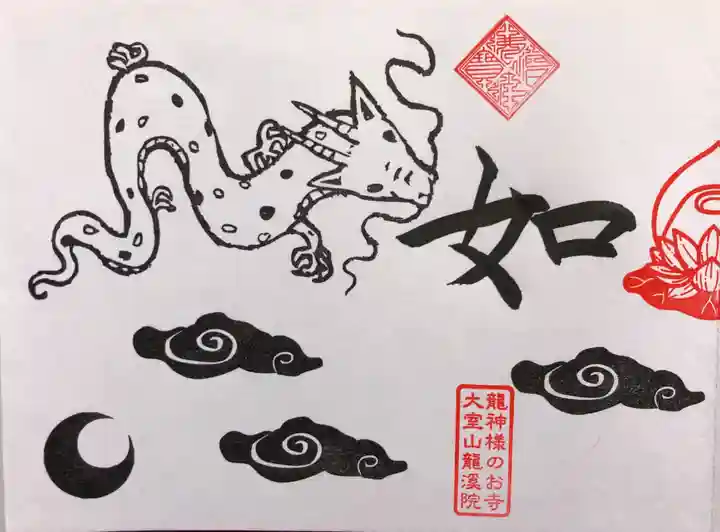 如
龍神様のお寺
大室山龍溪院